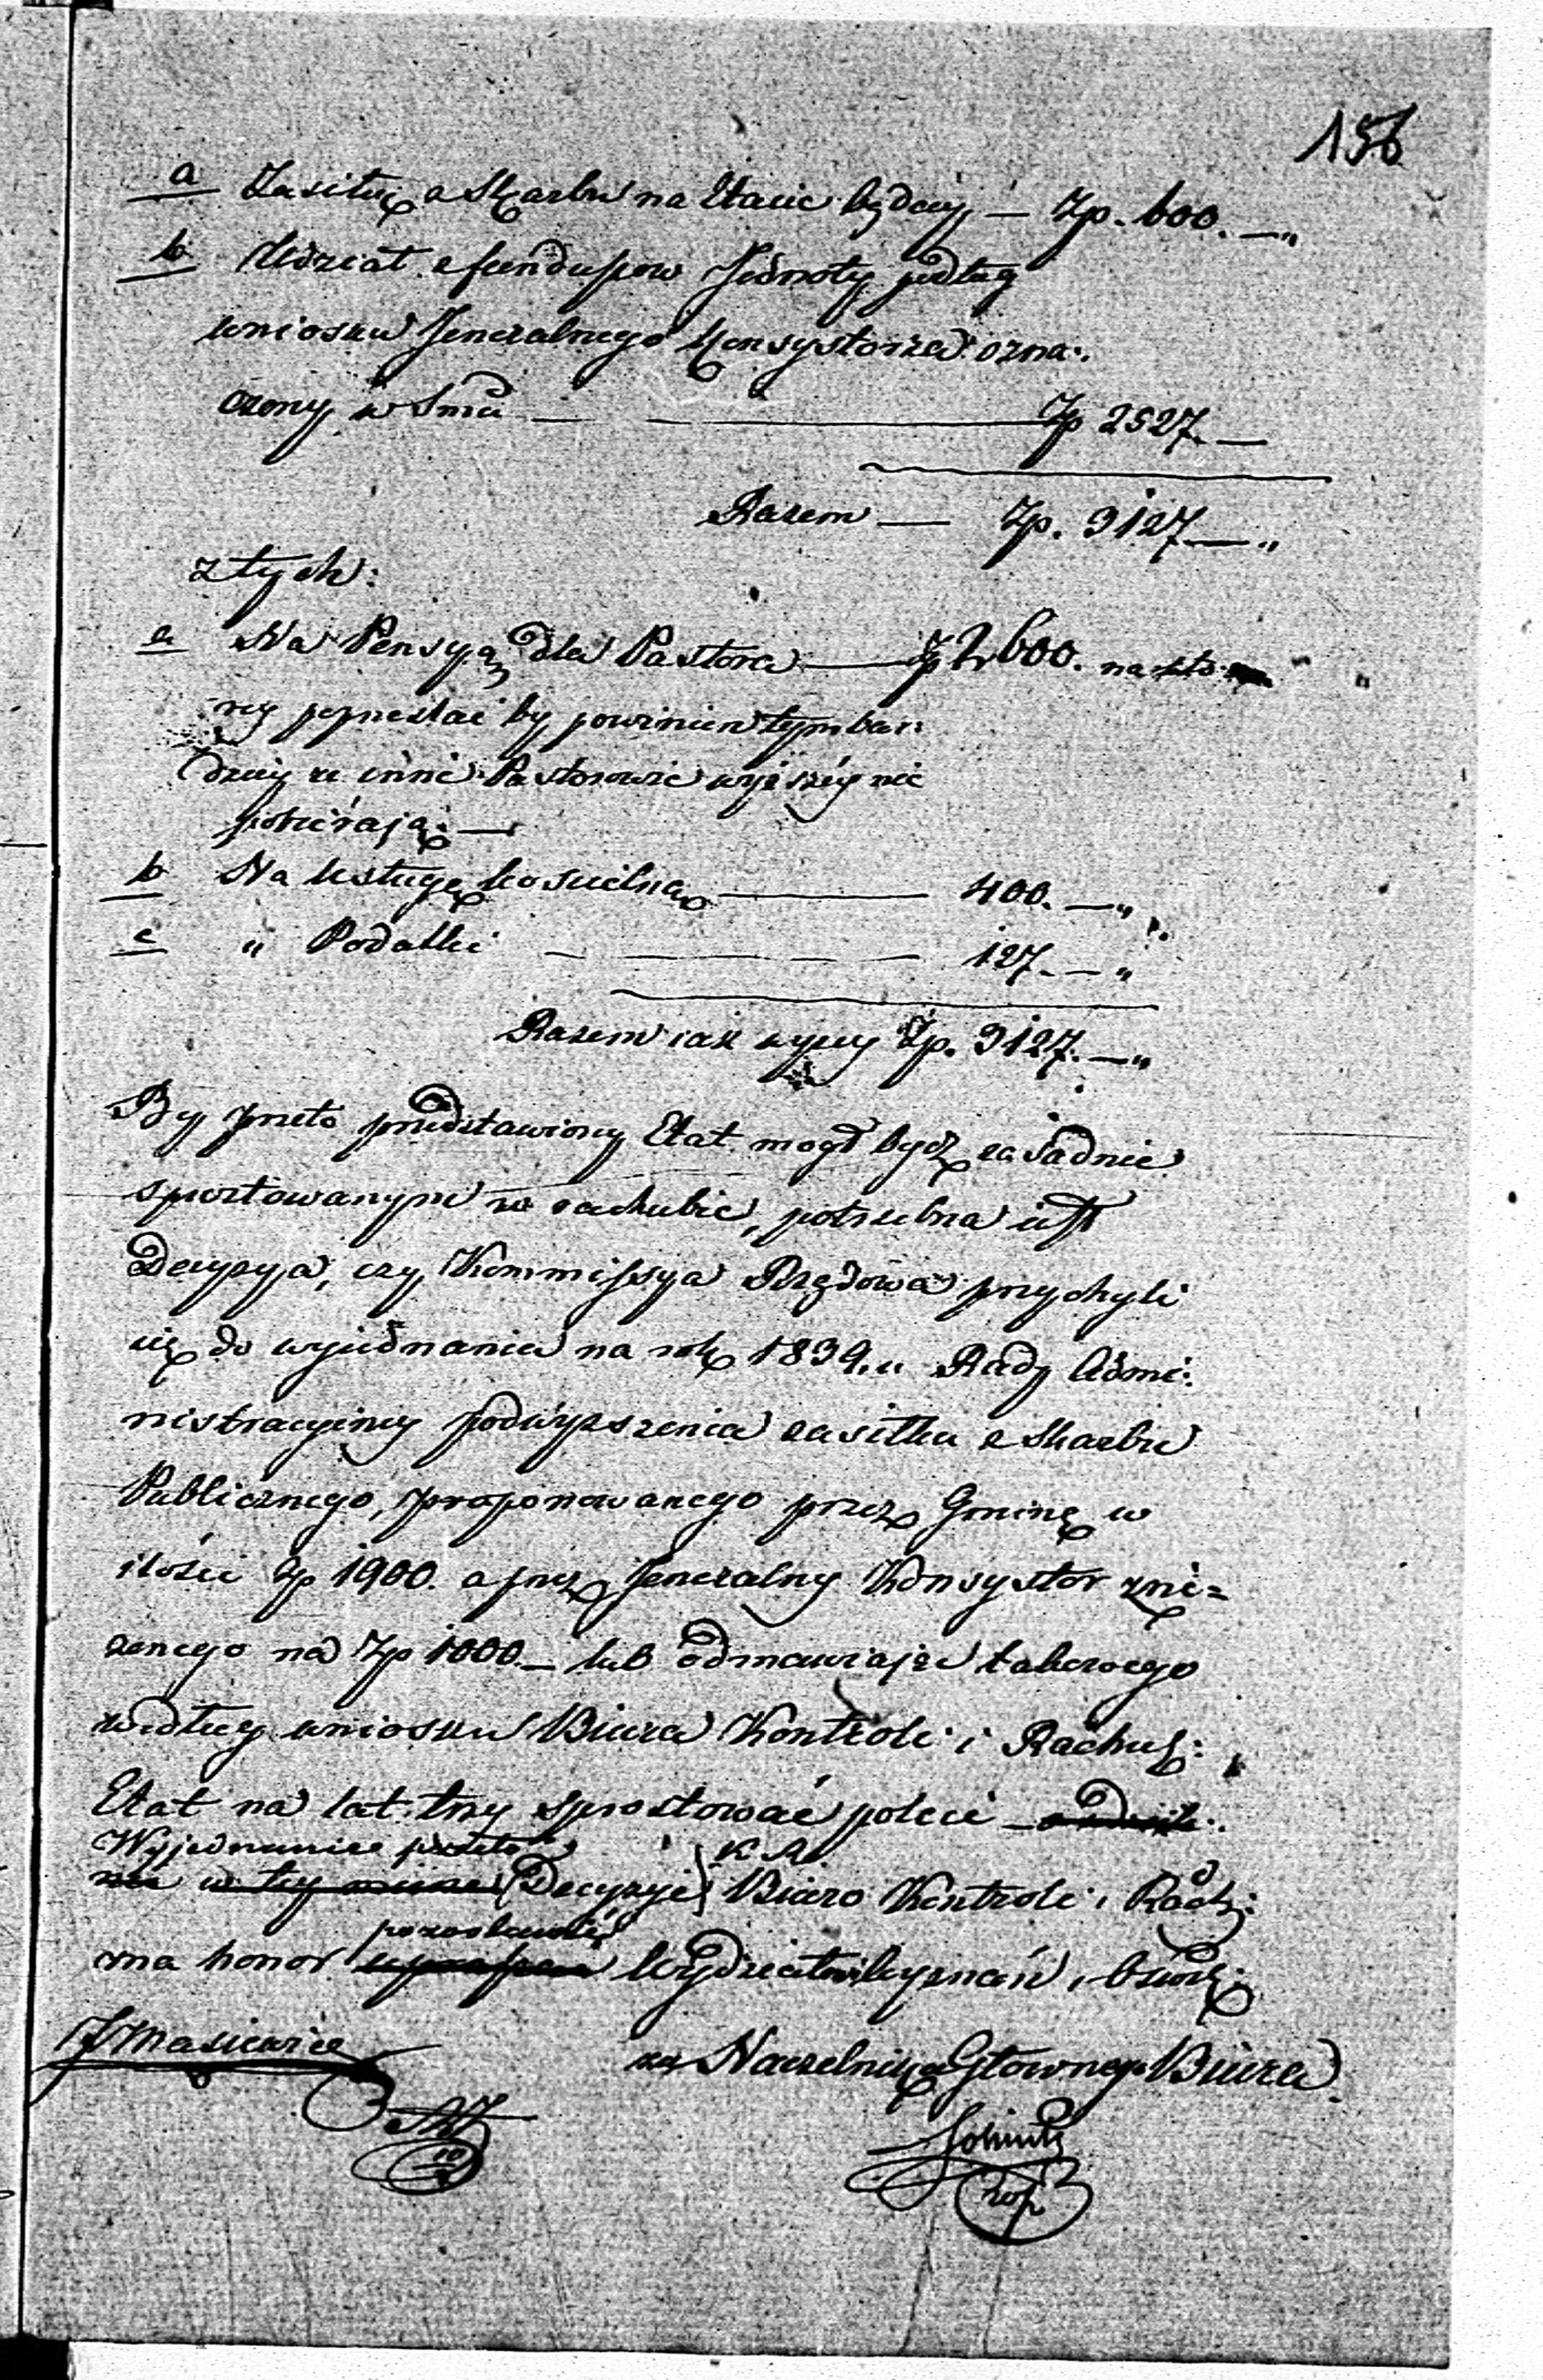 156
a Zasiłek z Skarbu na Etacie będący — Zp. 600. — „
b Udział z funduszow Jednoty podług
wniosku Jeneralnego Konsystorza ozna:
czony w Smie — Zp 2527. —
Razem — Zp. 3127 — „
z tych:
a Na Pensyą dla Pastora — Zp 2600. na któ
rey poprzestać by powinien tymbar:
dziey że inni Pastorowie wyższéy nie
pobierają. —
b Na usługę kościelną — 400. — „
c „ Podatki — 127. — „
Razem iak wyżey Zp. 3127. — „
By przeto przedstawiony Etat mogł bydź zasadnie
sprostowanym w rachubie, potrzebna iest
Decyzya, czy Kommissya Rządowa przychyli
się do wyjednania na rok 1839. u Rady Admi:
nistracyjney podwyższenia zasiłku z Skarbu
Publicznego, proponowanego przez Gminę w
ilości Zp 1900. a przez Jeneralny Konsystorz zni=
żonego na Zp 1000. — lub odmawiając takowego
według wniosku Biura Kontroli i Rachuk:
Etat na lat trzy sprostować poleci —
Wyjednanie przeto K. R.
w tey mierze Decyzyi Biuro Kontroli i Rach:
pozostawić
ma honor Wydziałowi Wyznań,
JMasiewicz
za Naczelnika Głownego Biura